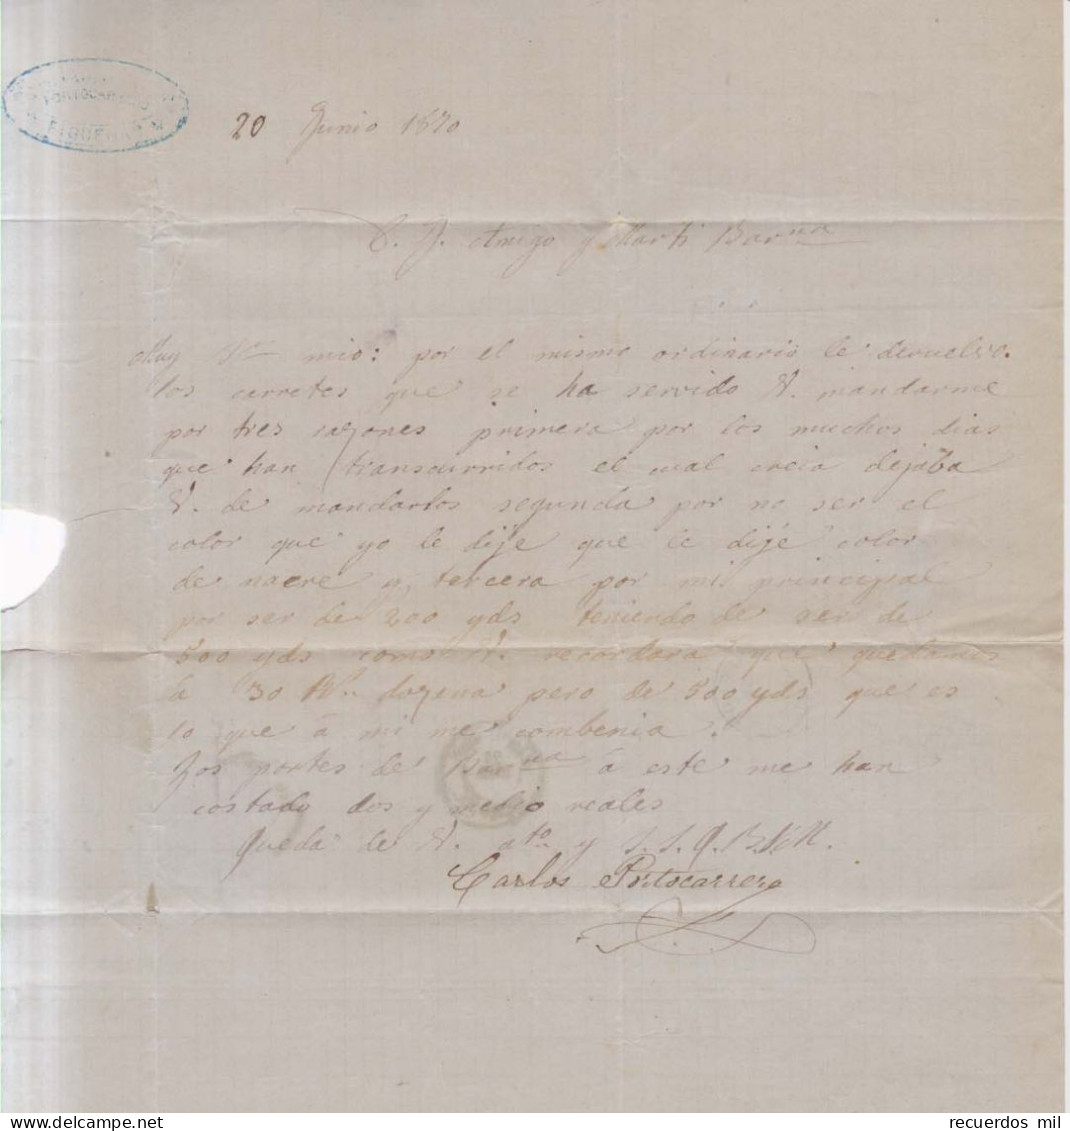 PORTOCARRERO
FIGUERAS
20 Junio 1870
Amigo y Marti Barna
Muy Sr mio: por el mismo ordinario le devuelvo
los carretes que se ha servido V. mandarme
por tres razones primera por los muchos dias
que han transcurridos el cual creia dejaba
V. de mandarlos segunda por no ser el
color que yo le dije que le dije color
de nacre y, tercera por mi principal
por ser de 200 yds teniendo de ser de
500 yds como V. recordara que quedamos
á 30 Rs. dozena pero de 500 yds que es
lo que á mi me combenia.
Los portes de Barna á este me han
costado dos y medio reales
Queda de V. ato y S. S. Q. B. S. M.
Carlos Portocarrero
recuerdos mil